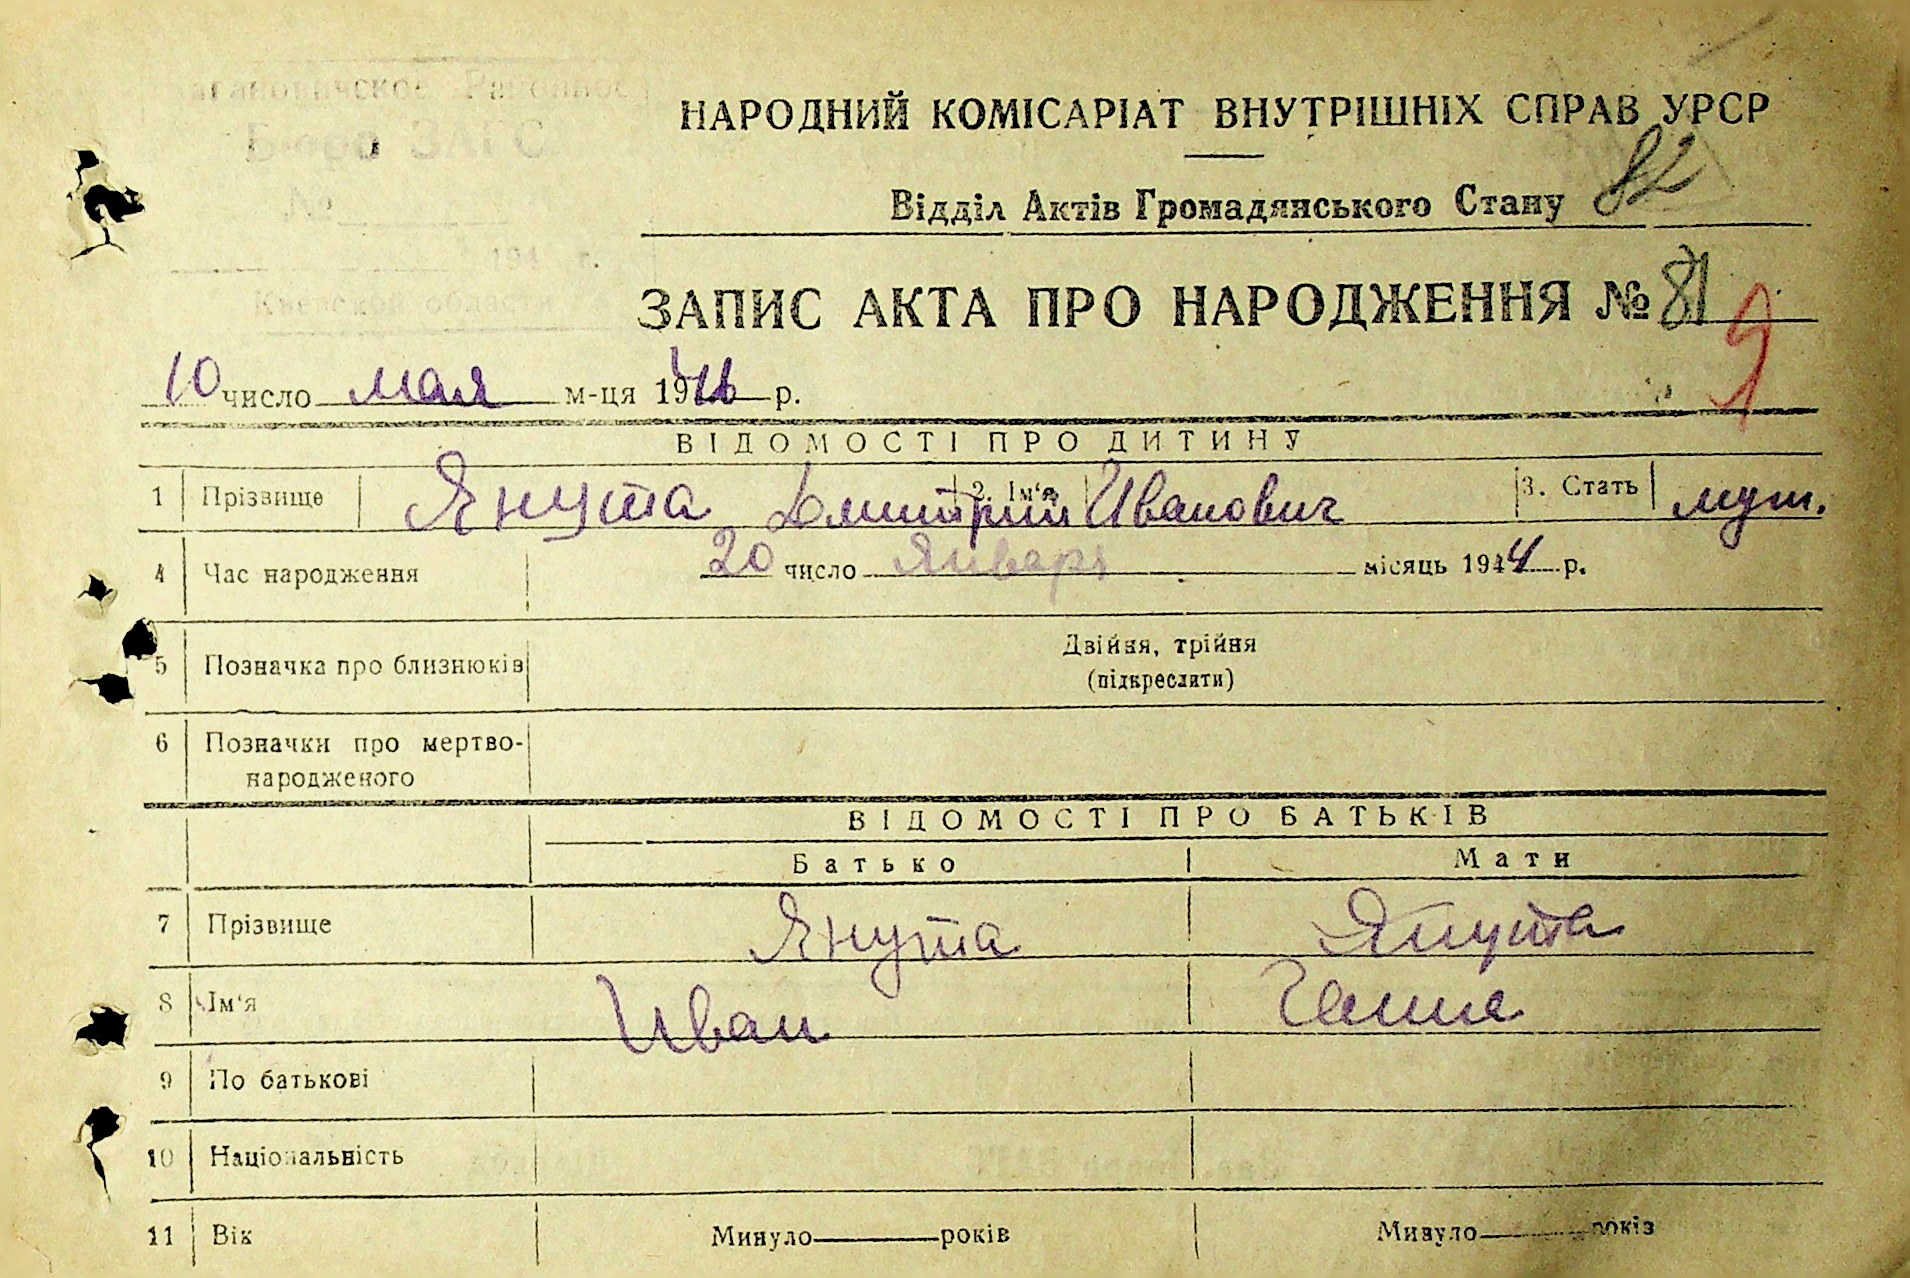 Кагановичское Районное
Бюро ЗАГС
№
194 г.
Киевской области
НАРОДНИЙ КОМІСАРІАТ ВНУТРІШНІХ СПРАВ УРСР
82
Відділ Актів Громадянського Стану
ЗАПИС АКТА ПРО НАРОДЖЕННЯ № 81
Я
10 число мая м-ця 1944 р.
ВІДОМОСТІ ПРО ДИТИНУ
1 Прізвище Янута 2. Ім'я Дмитрий Иванович 3. Стать муж.
4 Час народження 20 число Января місяць 1944 р.
5 Позначка про близнюків Двійня, трійня
(підкреслити)
6 Позначки про мертво-
народженого
ВІДОМОСТІ ПРО БАТЬКІВ
Батько Мати
7 Прізвище Янута Янута
8 Ім'я Иван Ганна
9 По батькові
10 Національність
11 Вік Минуло років Минуло років